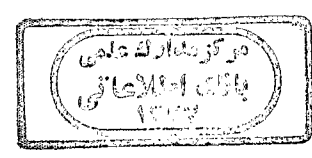 مرکز مدارک علمی
بانک اطلاعاتی